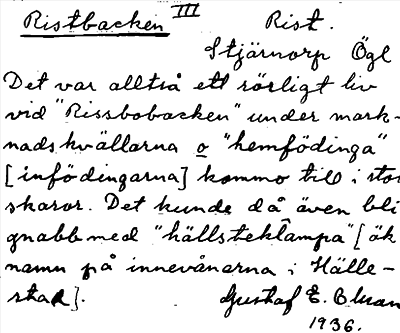 Ristbacken III Rist.
Stjärnorp Ögl
Det var alltså ett rörligt liv
vid "Rissbobacken" under mark-
nadskvällarna o "hemfödinga"
[infödingarna] kommo till i stor
skaror. Det kunde då även bli
gnabb med "hällsteklâmpa" [ök
namn på innevånarna i Hälle-
stad].
Gustaf E.
1936.